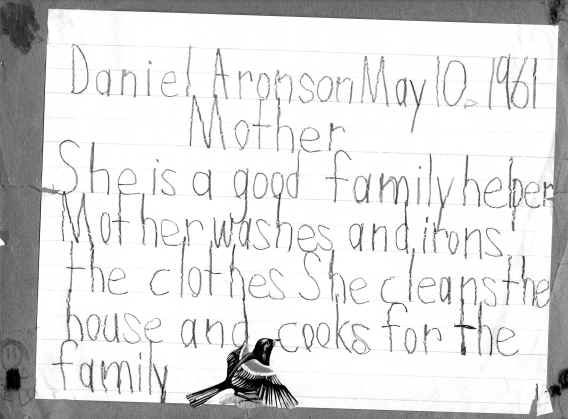 Daniel Aronson May 10, 1961
Mother
She is a good family helper
Mother washes and irons
the clothes She cleans the
house and cooks for the
family